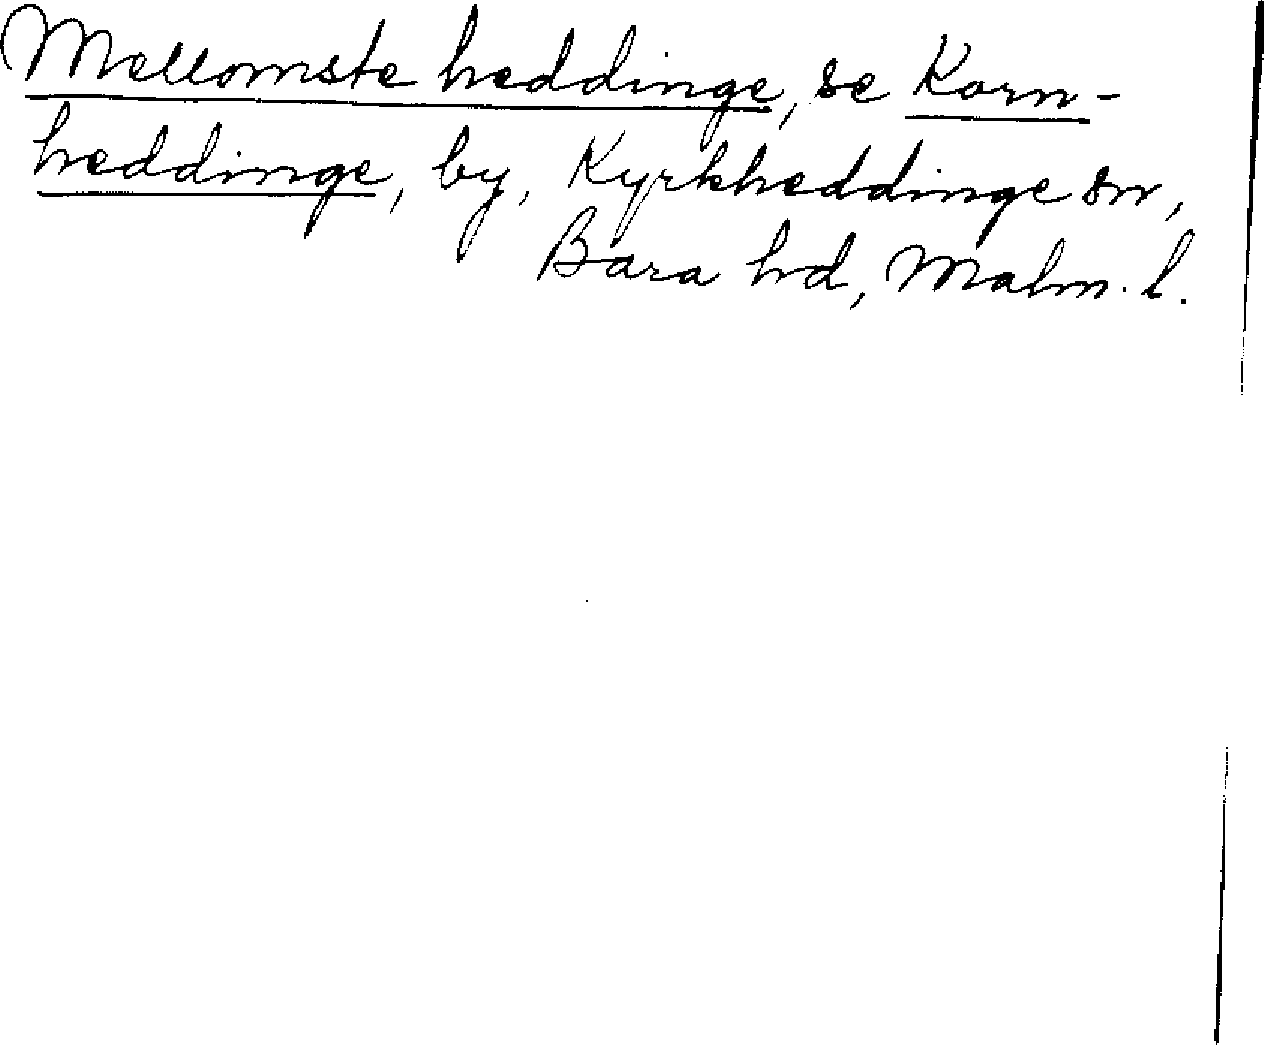 Mellomste heddinge, se Korn-
heddinge, by, Kyrkheddinge sn,
Bara hd, Malm. l.